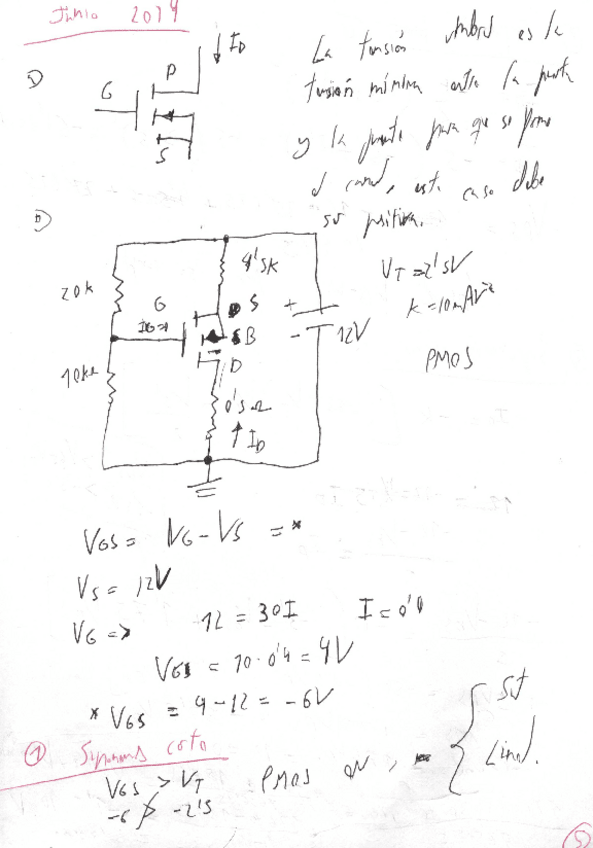 Junio 2014
1)
G
D
S
I_D
La tensión umbral es la
tensión mínima entre la puerta
y la fuente para que se forme
el canal, este caso debe
ser positiva.
D)
20k
10kΩ
G
4'5k
S
B
D
0'5Ω
↑ I_D
+
-
12V
V_T = 2'5V
k = 10mAV⁻²
PMOS
V_GS = V_G - V_S = *
V_S = 12V
V_G => 12 = 30I
= 10·0'4 = 4V
* V_GS = 4-12 = -6V
① Suponemos corte
V_GS > V_T
-6 ≯ -2'5
PMOS ON, { Sat
Lineal.
5